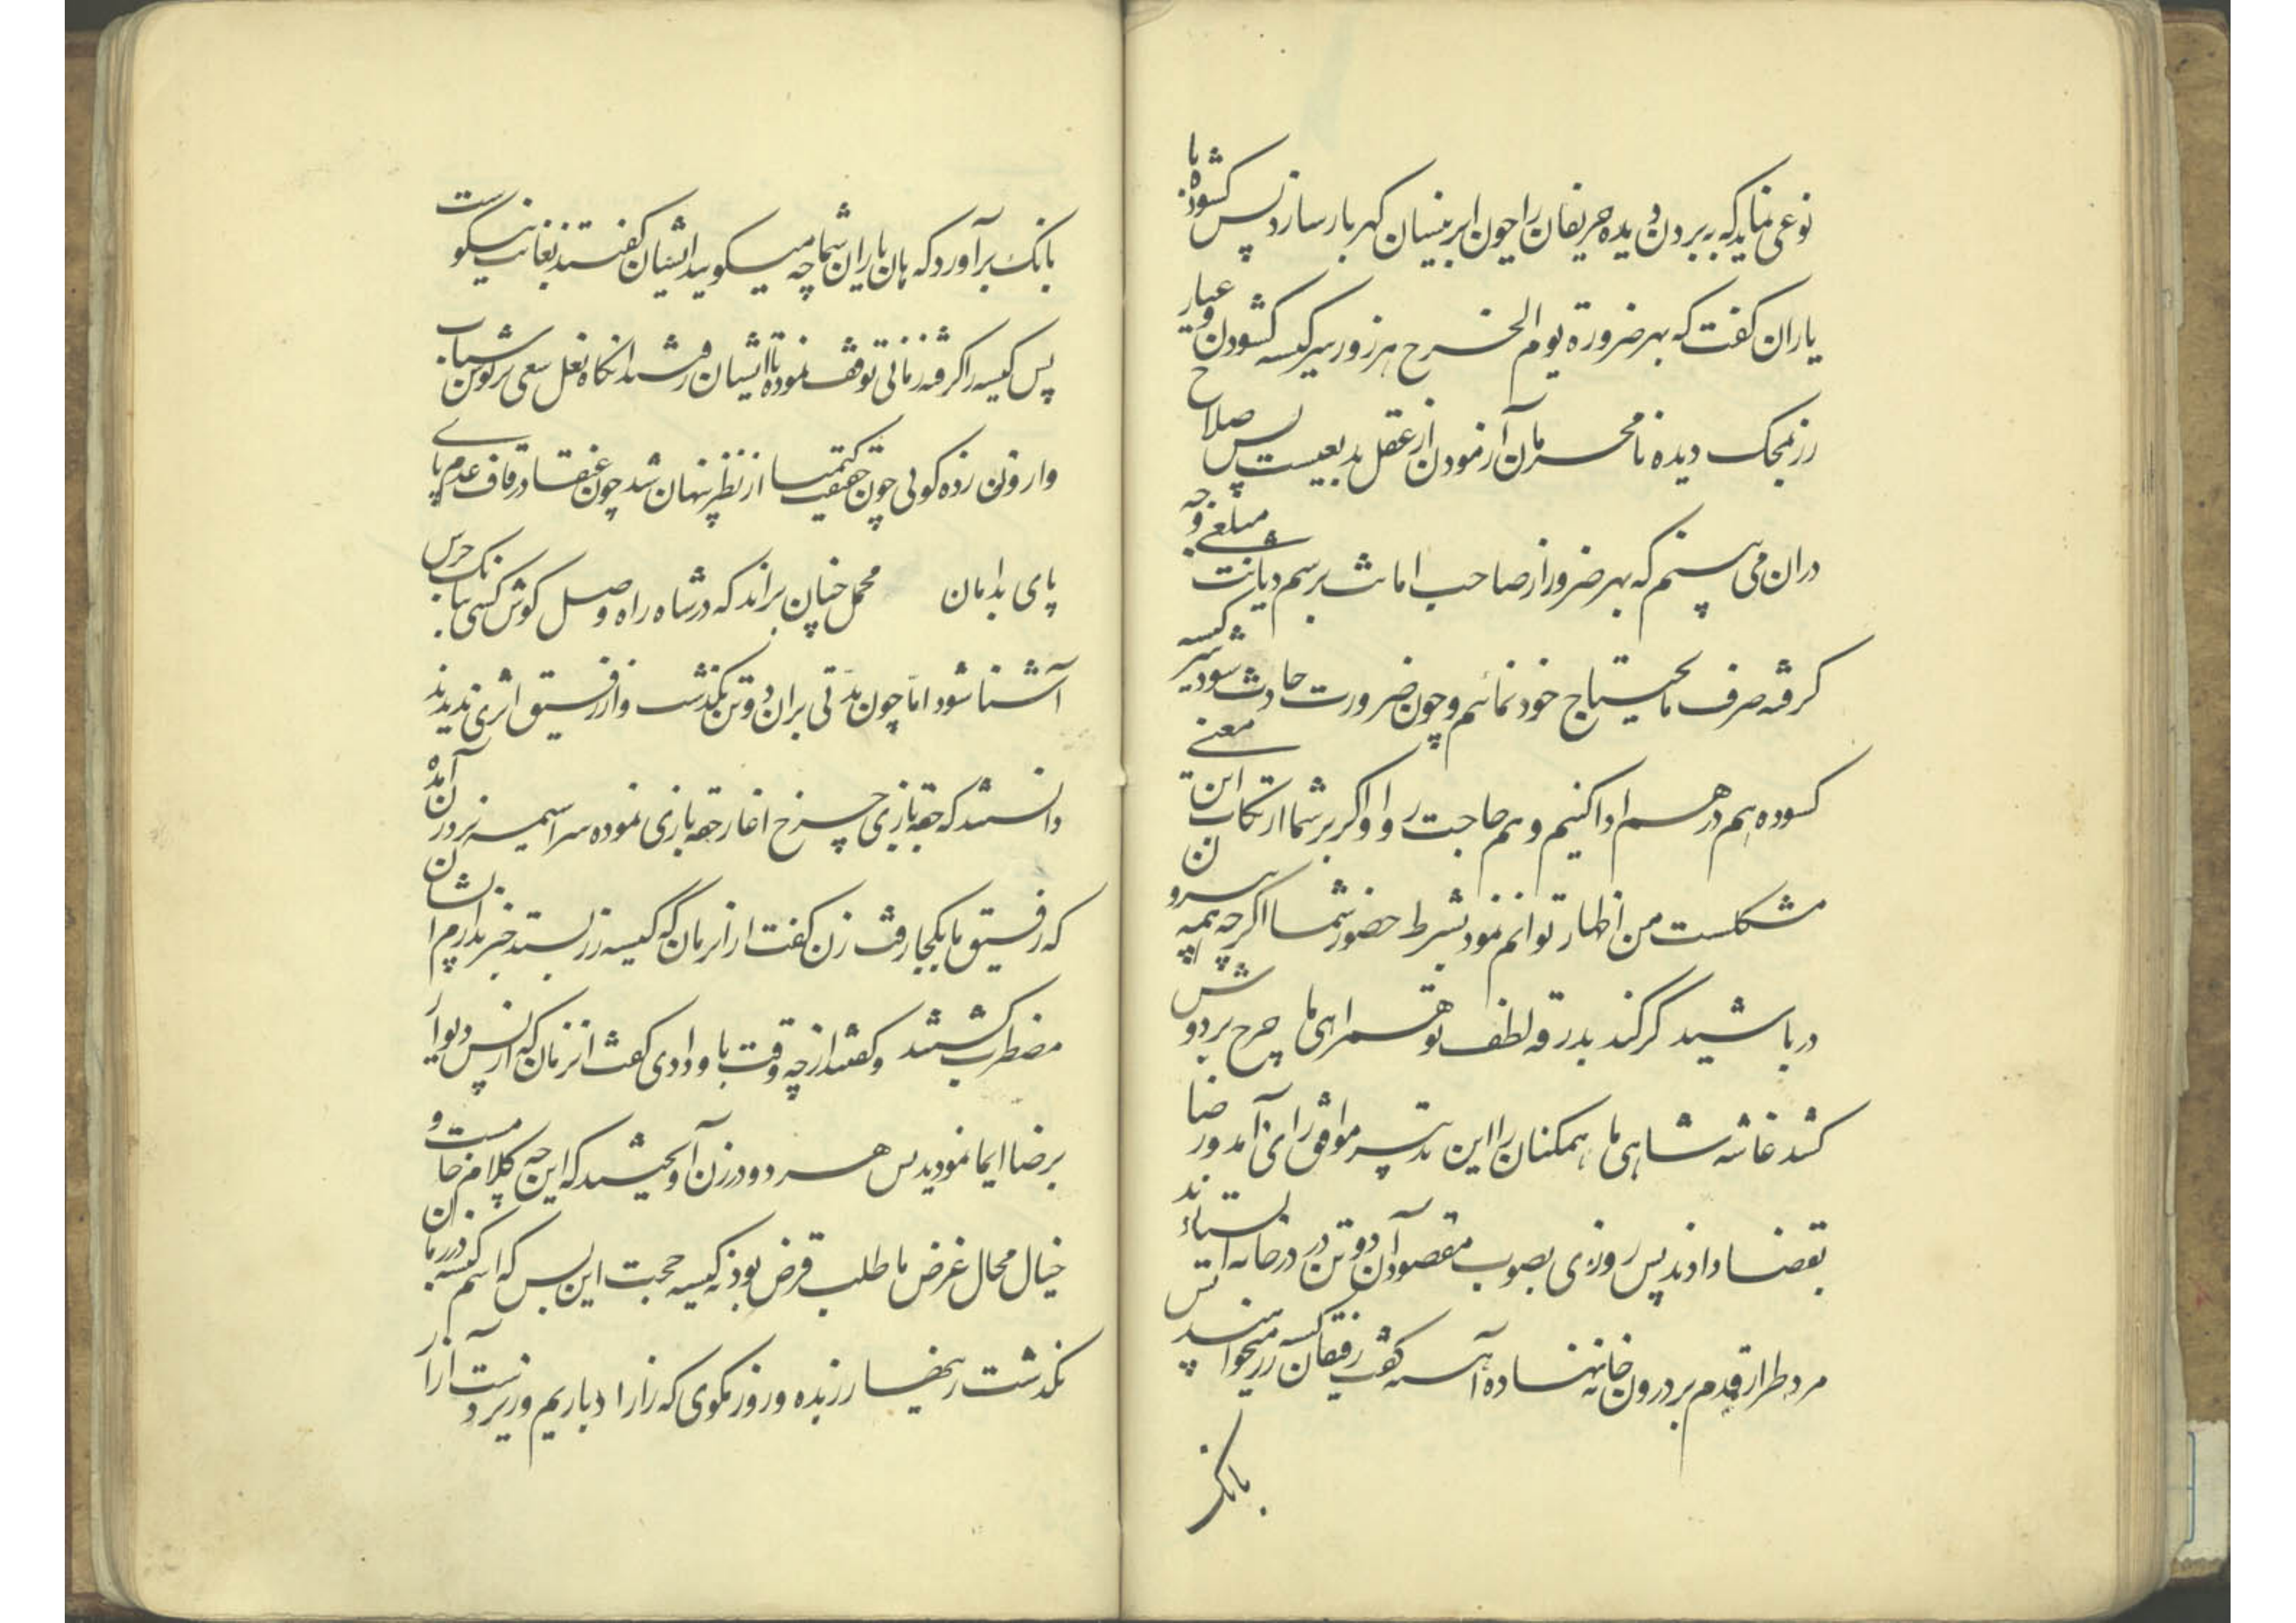 نوعی نماید که ببردن دیده حریفان را چون ابر نیسان گهربار سازد پس کشوده با
یاران گفت که بهر ضرورة یوم الخرج هر زور سر کیسه کشودن و عیار
زر بمحک دیده نامحرمان آزمودن از عقل بدیعیست پس صلاح
دران می بینم که بهر ضرور از صاحب امانت برسم دیانت مبلغی وجه
گرفته صرف مایحتاج خود نمائیم و چون ضرورت حادث شود سر کیسه
کشوده هم درهم ادا کنیم و هم حاجت روا و اگر بر شما ارتکاب این معنی
مشکلست من اظهار توانم نمود بشرط حضور شما اگر چه همه بیرون
در باشید گر کند بدرقه لطف تو همراهی ما چرخ بر دوش
کشد غاشیه شاهی ما همکنان را این تدبیر موافق رای آمد و رضا
بقضا دادند پس روزی بصوب مقصود آن دو تن در در خانه استادند
مرد طرار قدم بر درون خانه نهاده آهسته گفت رفیقان کیسه زر میخواهند پس
بانگ بر
بانک برآورد که هان یاران شما چه میگویید ایشان گفتند بغایت نیکوست
پس کیسه را گرفته زمانی توقف نموده تا ایشان رفتند انگاه نعل سعی بر توسن شتاب
وارون زده گوئی چون حقیقت کیمیا از نظر پنهان شد چون عنقا در قاف عدم پای
پای بدامان محمل چنان براند که در شاه راه وصل گوش کسی ببانک جرس
آشنا شود اما چون مدتی بران دو تن بگذشت و از رفیق اثری ندیدند
دانستند که حقه بازی چرخ آغاز حقه بازی نموده سراسیمه نزد زن آمده
که رفیق ما بکجا رفت زن گفت از انزمان که کیسه زر بستد خبر ندارم ایشان
مضطرب گشتند و گفتند از چه وقت باو دادی گفت انزمان که از پس دیوار
برضا ایما نمودید پس هر دو در زن آویختند که این چه کلام خاست و
خیال محال غرض ما طلب قرض بود نه کیسه حجت این بس که اسم کیسه در زبان
نگذشت زینهار زر بده و زور مگوی که زر را